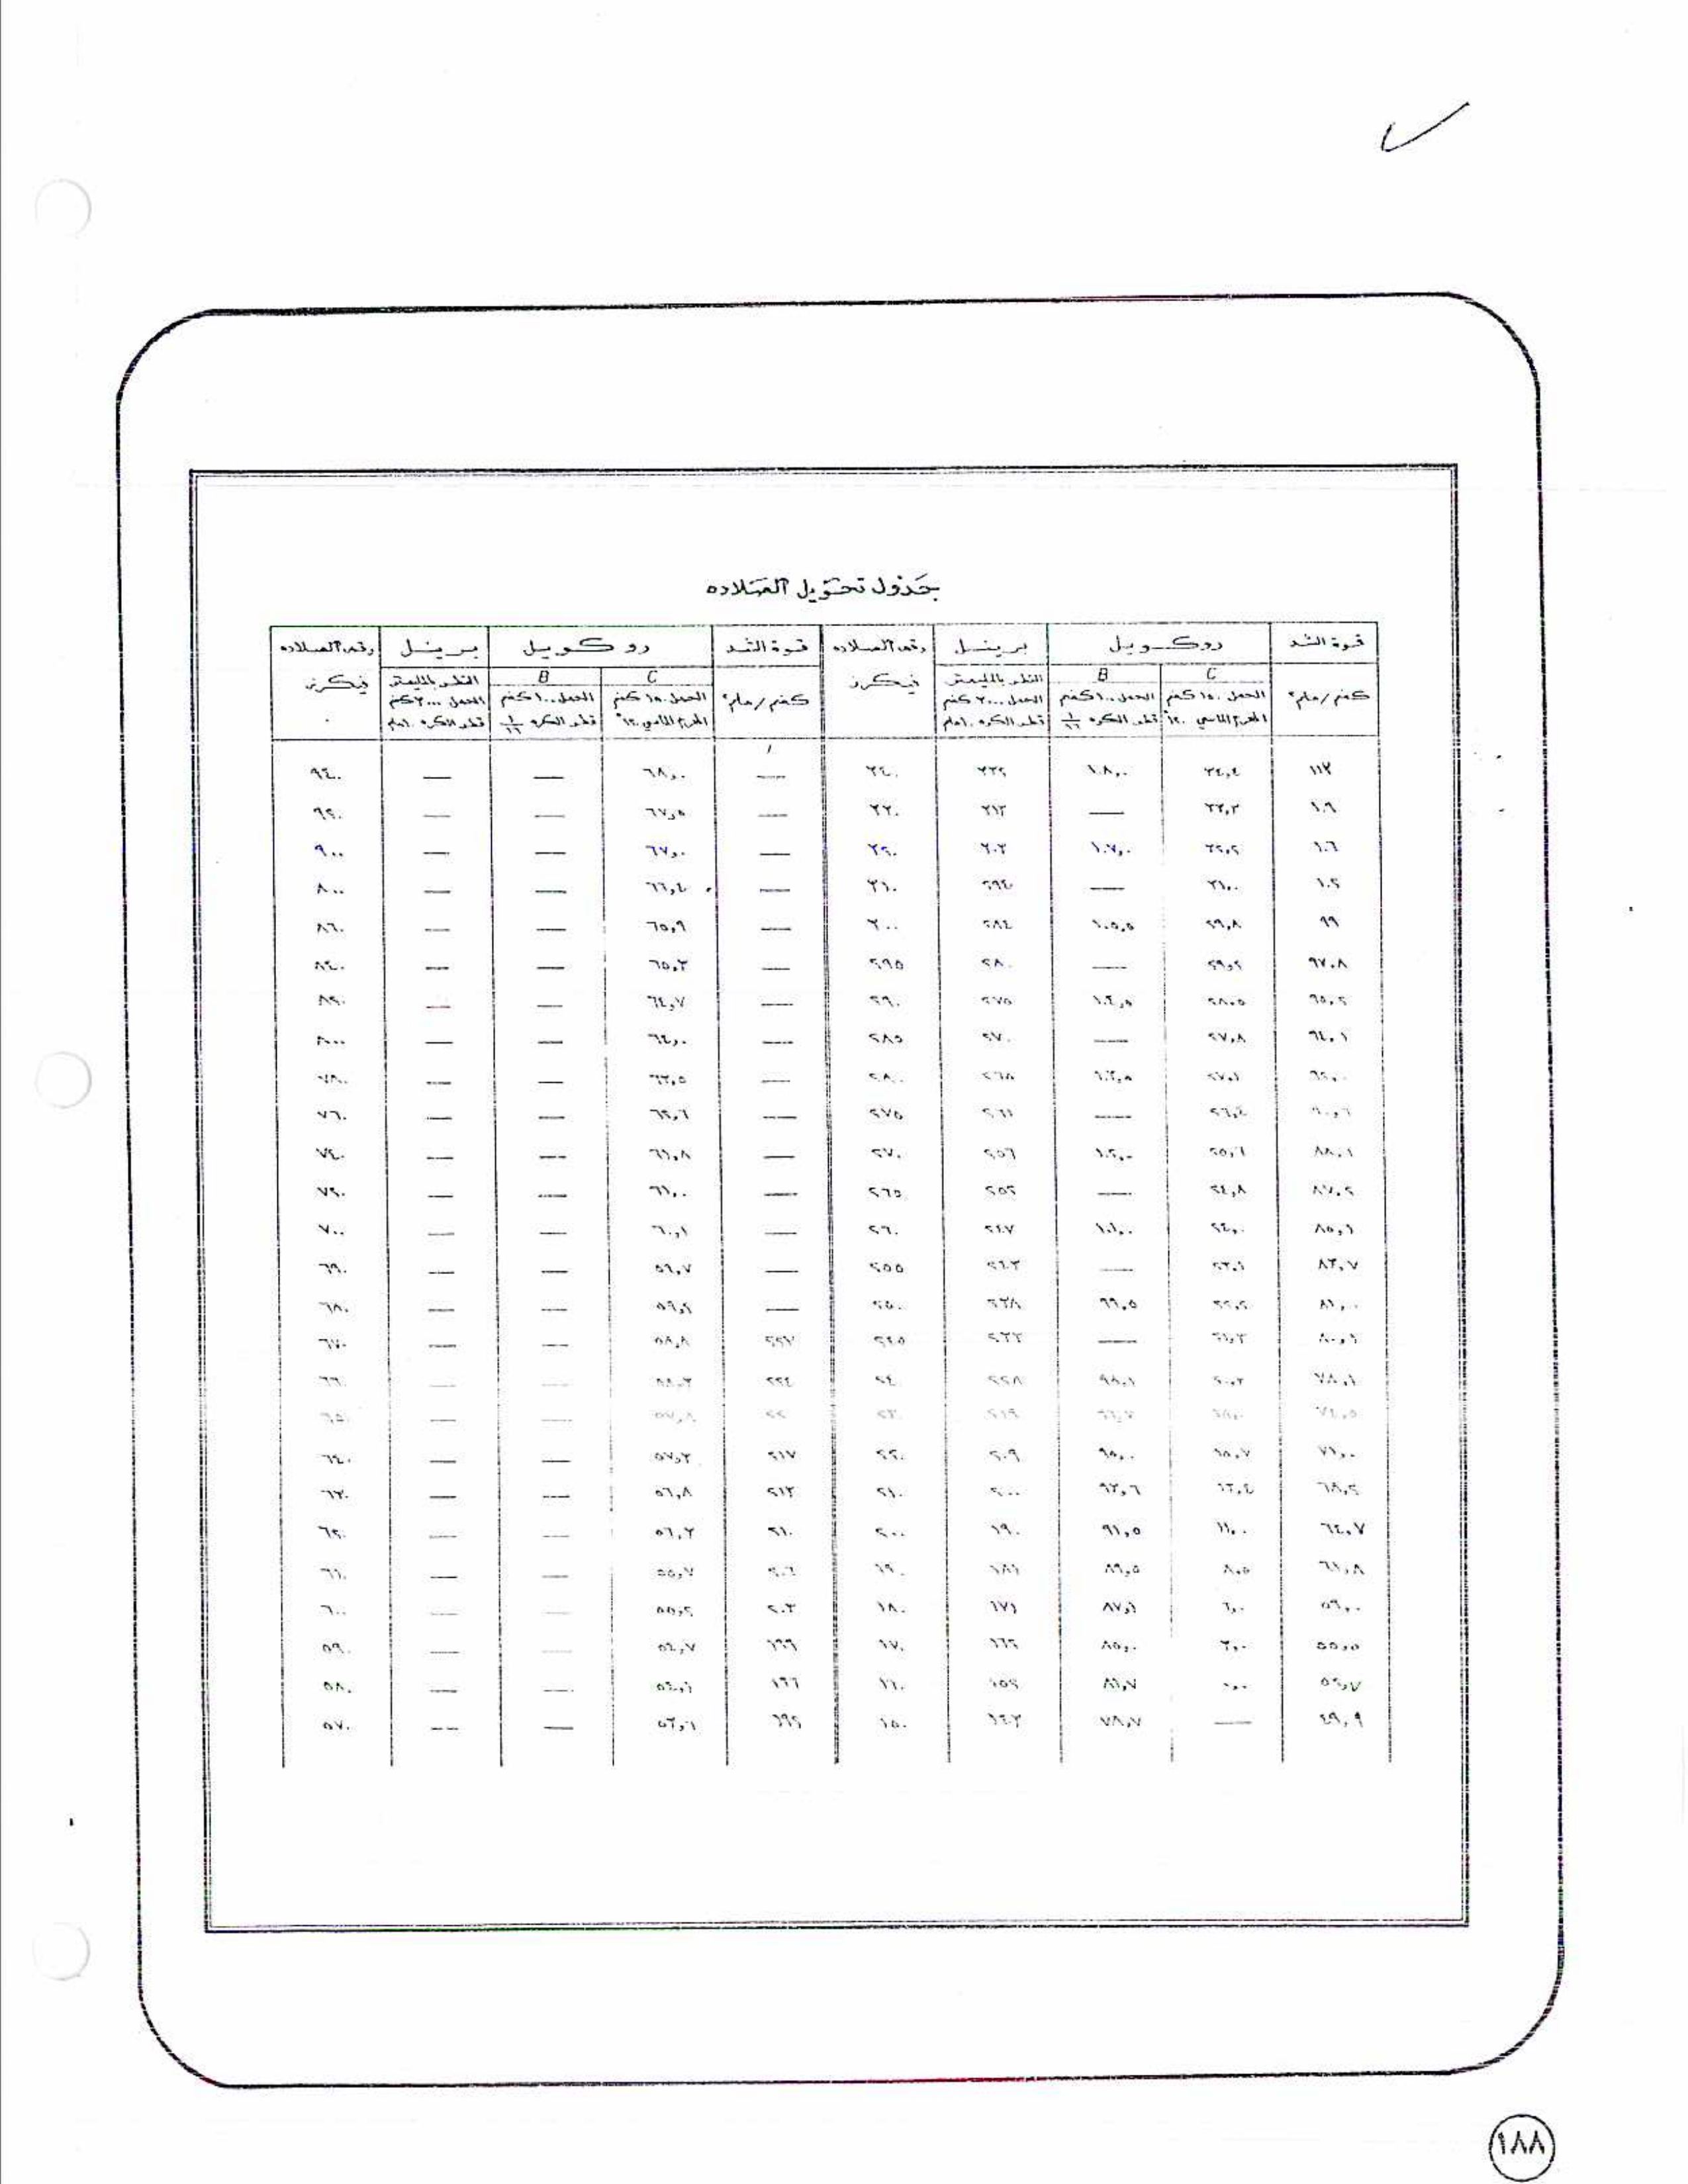 جدول تحويل الصلاده
قوة الشد روكويل برينل رقم الصلاده قوة الشد روكويل برينل رقم الصلاده
كغم/ملم٢ C B القطر بالمليمتر فيكرز كغم/ملم٢ C B القطر بالمليمتر فيكرز
الحمل ١٥٠ كغم الحمل ١٠٠ كغم الحمل ٣٠٠٠ كغم الحمل ١٥٠ كغم الحمل ١٠٠ كغم الحمل ٣٠٠٠ كغم
الهرم الماسي ١٢٠° قطر الكره ١/١٦ قطر الكره ١٠ملم الهرم الماسي ١٢٠° قطر الكره ١/١٦ قطر الكره ١٠ملم
١١٢ ٣٤,٤ ١٠٨,٠ ٣٢٢ ٣٤٠ — ٦٨,٠ — — ٩٤٠
١٠٩ ٣٣,٣ — ٣١٣ ٣٣٠ — ٦٧,٥ — — ٩٢٠
١٠٦ ٣٢,٢ ١٠٧,٠ ٣٠٣ ٣٢٠ — ٦٧,٠ — — ٩٠٠
١٠٢ ٣١,٠ — ٢٩٤ ٣١٠ — ٦٦,٤ — —
٩٩ ٢٩,٨ ١٠٥,٥ ٢٨٤ ٣٠٠ — ٦٥,٩ — — ٨٦٠
٩٧,٨ ٢٩,٢ — ٢٨٠ ٢٩٥ — ٦٥,٣ — — ٨٤٠
٩٥,٢ ٢٨,٥ ١٠٤,٥ ٢٧٥ ٢٩٠ — ٦٤,٧ — — ٨٢٠
٩٤,١ ٢٧,٨ — ٢٧٠ ٢٨٥ — ٦٤,٠ — — ٨٠٠
٩٢,٠ ٢٧,١ ١٠٣,٥ ٢٦٥ ٢٨٠ — ٦٣,٥ — — ٧٨٠
٩٠,٦ ٢٦,٤ — ٢٦١ ٢٧٥ — ٦٢,٦ — — ٧٦٠
٨٨,١ ٢٥,٦ ١٠٢,٠ ٢٥٦ ٢٧٠ — ٦١,٨ — — ٧٤٠
٨٧,٢ ٢٤,٨ — ٢٥٢ ٢٦٥ — ٦١,٠ — — ٧٢٠
٨٥,١ ٢٤,٠ ١٠١,٠ ٢٤٧ ٢٦٠ — ٦٠,١ — — ٧٠٠
٨٣,٧ ٢٣,١ — ٢٤٣ ٢٥٥ — ٥٩,٧ — — ٦٩٠
٨١,٠ ٢٢,٢ ٩٩,٥ ٢٣٨ ٢٥٠ — ٥٩,٢ — — ٦٨٠
٨٠,١ ٢١,٣ — ٢٣٣ ٢٤٥ ٢٢٧ ٥٨,٨ — — ٦٧٠
٧٨,١ ٢٠,٣ ٩٨,١ ٢٢٨ ٢٤٠ ٢٢٤ ٥٨,٣ — — ٦٦٠
٧٤,٥ ١٨,٠ ٩٦,٧ ٢١٩ ٢٣٠ ٢٢٠ ٥٧,٨ — — ٦٥٠
٧١,٠ ١٥,٧ ٩٥,٠ ٢٠٩ ٢٢٠ ٢١٧ ٥٧,٣ — — ٦٤٠
٦٨,٢ ١٣,٤ ٩٣,٦ ٢٠٠ ٢١٠ ٢١٣ ٥٦,٨ — — ٦٣٠
٦٤,٧ ١١,٠ ٩١,٥ ١٩٠ ٢٠٠ ٢١٠ ٥٦,٣ — — ٦٢٠
٦١,٨ ٨,٥ ٨٩,٥ ١٨١ ١٩٠ ٢٠٦ ٥٥,٧ — — ٦١٠
٥٩,٠ ٦,٠ ٨٧,١ ١٧١ ١٨٠ ٢٠٣ ٥٥,٢ — — ٦٠٠
٥٥,٥ ٣,٠ ٨٥,٠ ١٦٢ ١٧٠ ١٩٩ ٥٤,٧ — — ٥٩٠
٥٢,٧ ٠,٠ ٨١,٧ ١٥٢ ١٦٠ ١٩٦ ٥٤,١ — — ٥٨٠
٤٩,٩ — ٧٨,٧ ١٤٣ ١٥٠ ١٩٢ ٥٣,٦ — — ٥٧٠
١٨٨